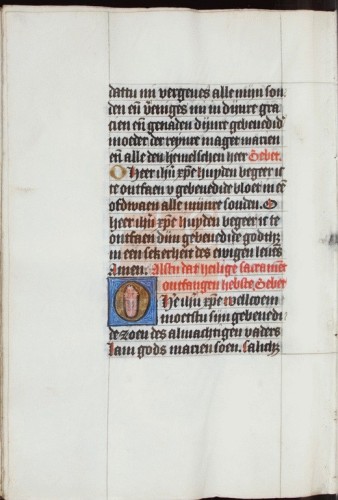 dattu mi vergeues alle mijn son
den eñ v̄eniges mi in dijnre gra
cien eñ genaden dijnre gebenedid
moeder der reynre maget marien
eñ alle den hemelschen heer Gebet.
O heer ihū xp̄e huyden begeer ic
te ontfaen v gebenedide bloet in
ofdwaen alle mijnre sonden. O
heer ihū xp̄e huyden begeer ic te
ontfaen dijn gebenedide
in een sekerheit des ewigen leuēs
Amen. Alstu dat heilige sacramēt
ontfangen hebste Gebet
O He ihū xp̄e wellecoem
moetstu sijn gebenedi
de zoen des almachtigen vaders
Lam gods marien soen. Salich